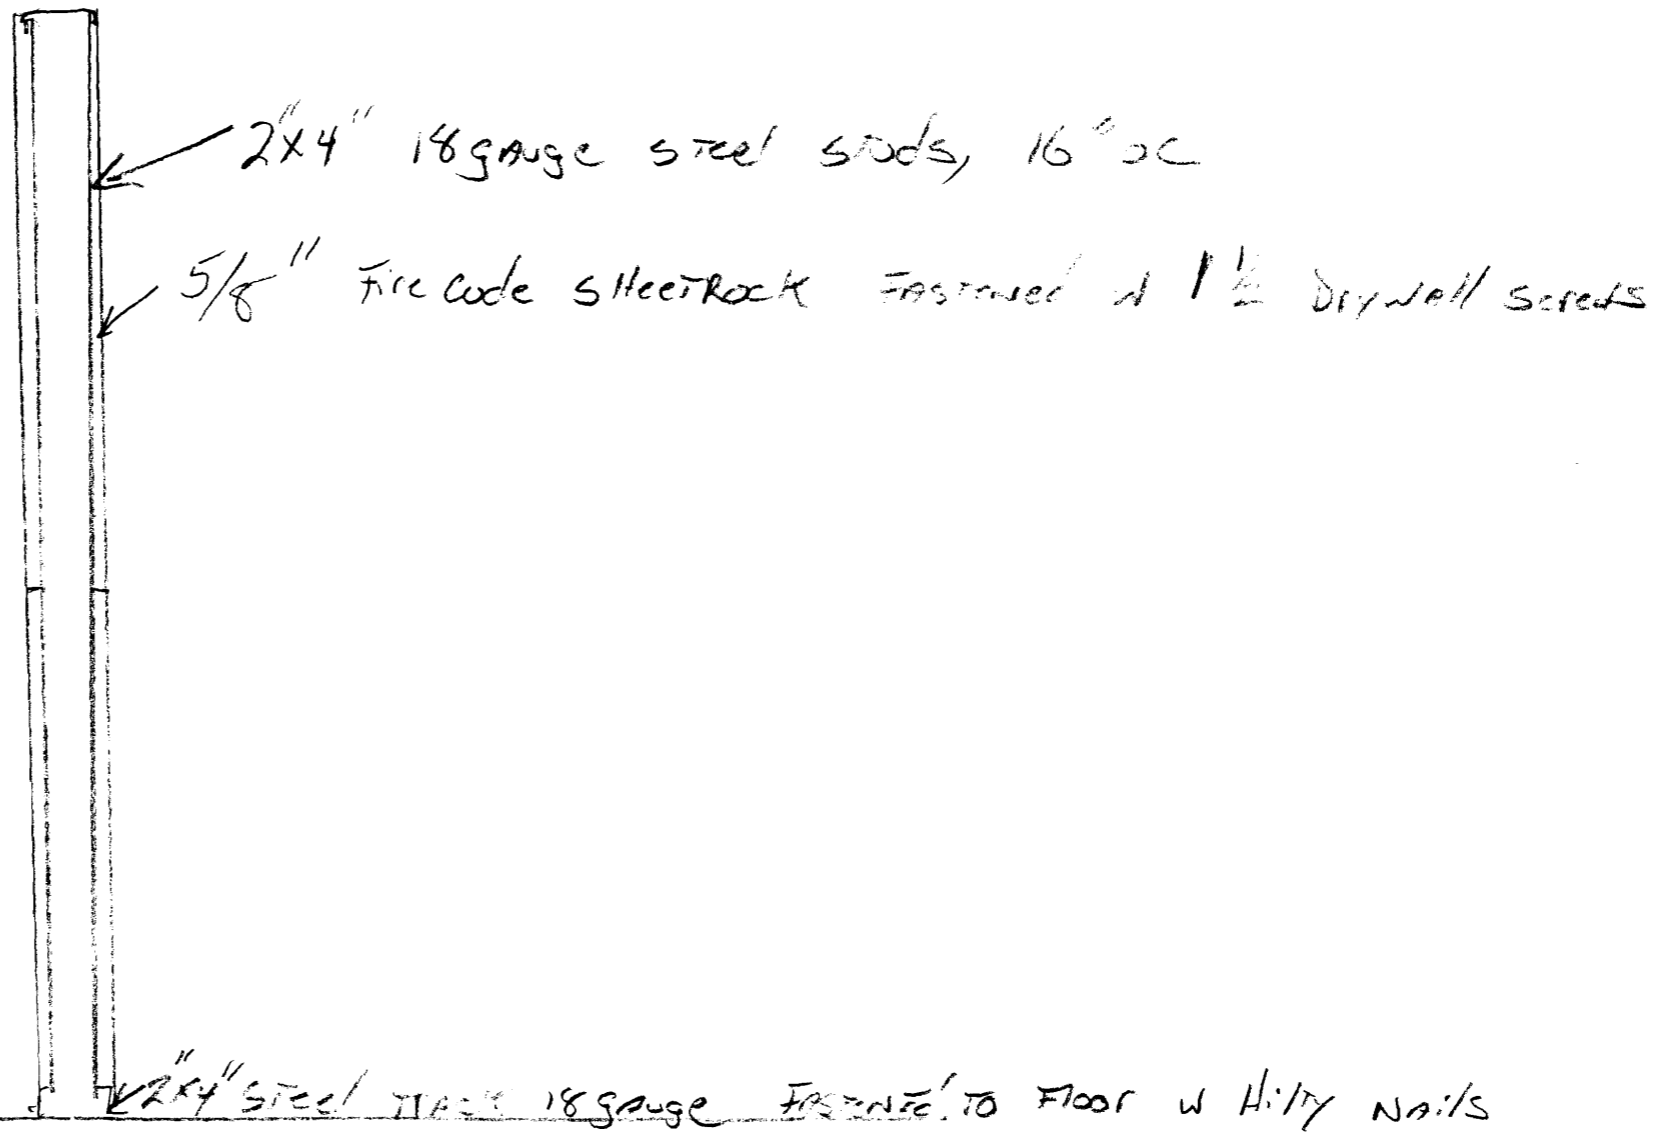 2"x4" 18gauge steel studs, 16" oc
5/8" Fire Code SHeetRock Fastened w 1 1/2 Drywall screws
2"x4" steel Track 18gauge Fastened to Floor w Hilty Nails